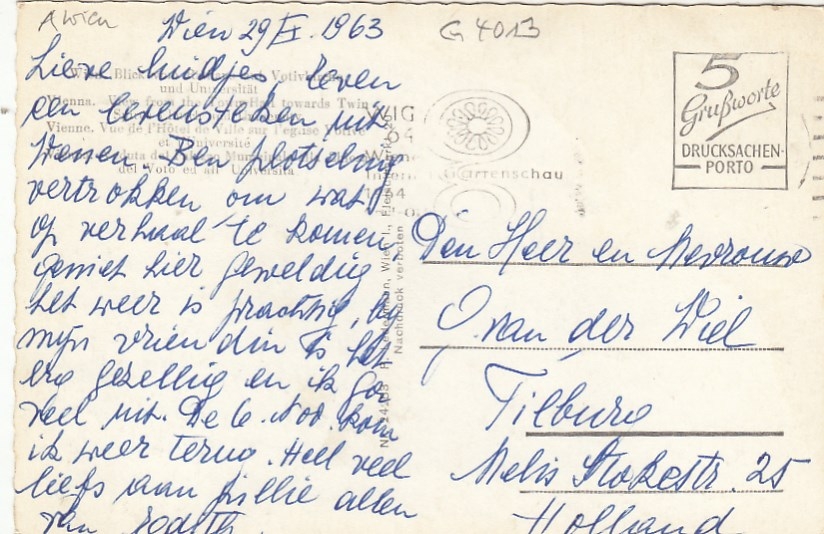 A Wien
Wien 29 IX. 1963
G 4013
Lieve luidjes, Even
een levensteken uit
Wenen. Ben plotseling
vertrokken om wat
op verhaal te komen,
geniet hier geweldig
het weer is prachtig, bij
mijn vriendin is het
erg gezellig en ik ga
veel uit. De 6. Nov. kom
ik weer terug. Heel veel
liefs aan Jillie allen
van Edith.
Wien. Blick
und Universität
Vienna. View from the Town Hall towards Twin
Vienne. Vue de l'Hôtel de Ville sur l'église Votive
et l'Université
del Voto ed all' Università
WIG
64
Wien
Gartenschau
Nachdruck verboten
5
Grußworte
DRUCKSACHEN-
PORTO
Den Heer en Mevrouw
J. van der Wiel
Tilburg
Melis Stokestr. 25
Holland